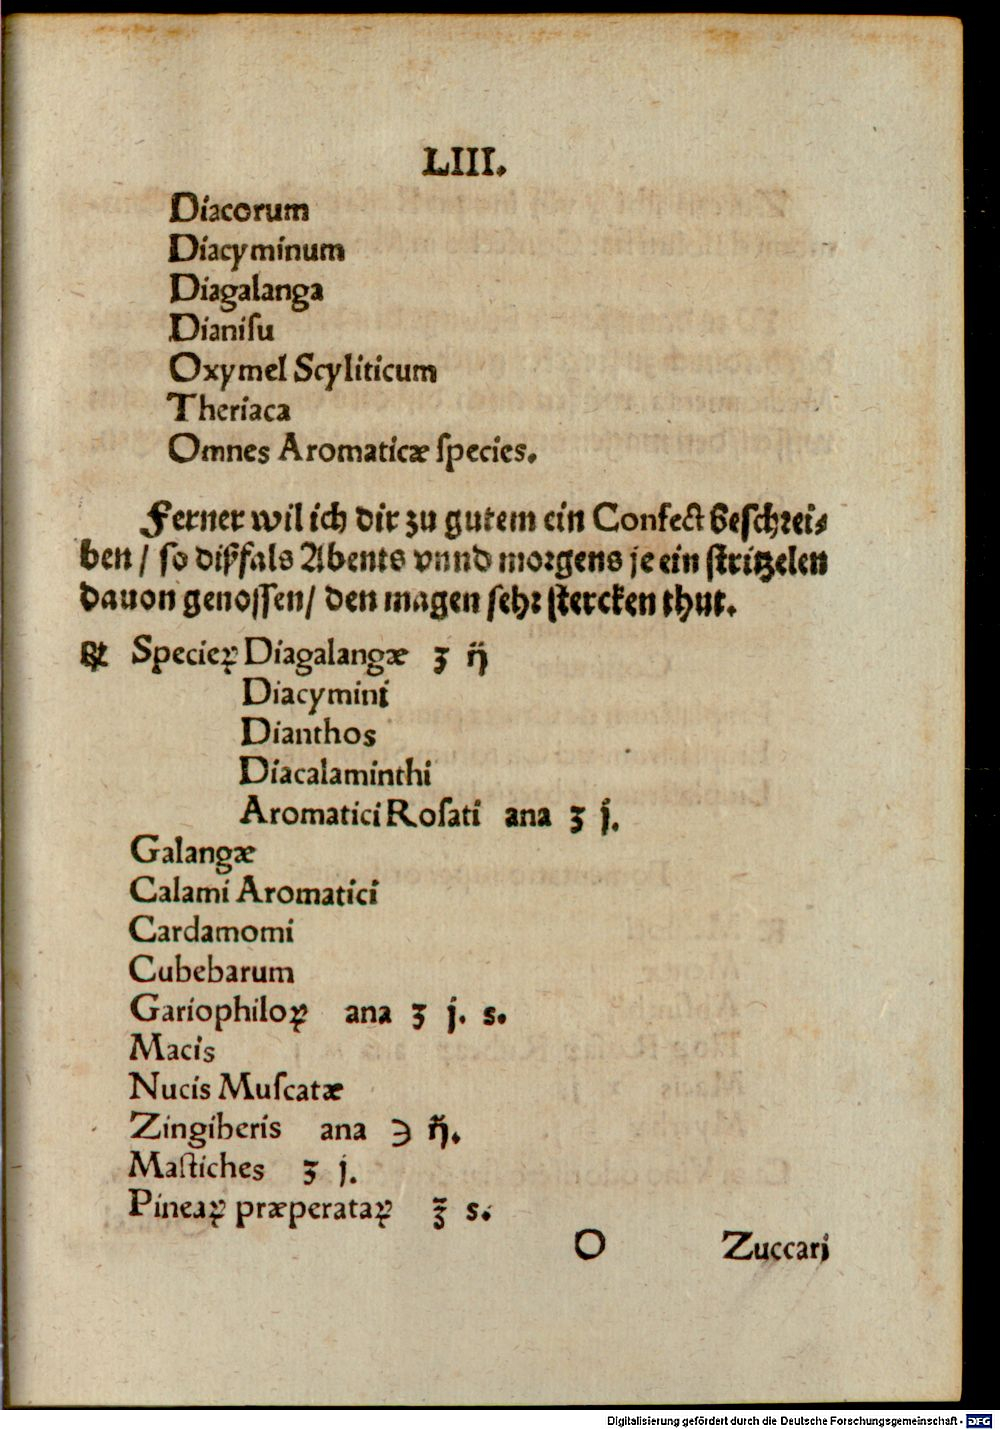 LIII.
Diacorum
Diacyminum
Diagalanga
Dianiſu
Oxymel Scyliticum
Theriaca
Omnes Aromaticæ ſpecies.
Ferner wil ich dir zu gutem ein Confect beſchꝛei⸗
ben / ſo diſzfals Abents vnnd moꝛgens je ein ſtritzelen
dauon genoſſen / den magen ſehꝛ ſtercken thut.
℞ Specieꝝ Diagalangæ ʒ ij
Diacymini
Dianthos
Diacalaminthi
Aromatici Roſati ana ʒ j.
Galangæ
Calami Aromatici
Cardamomi
Cubebarum
Gariophiloꝝ ana ʒ j. s.
Macis
Nucis Muſcatæ
Zingiberis ana ℈ ij.
Maſtiches ʒ j.
Pineaꝝ præperataꝝ ℥ s.
O Zuccari
Digitalisierung gefördert durch die Deutsche Forschungsgemeinschaft - DFG